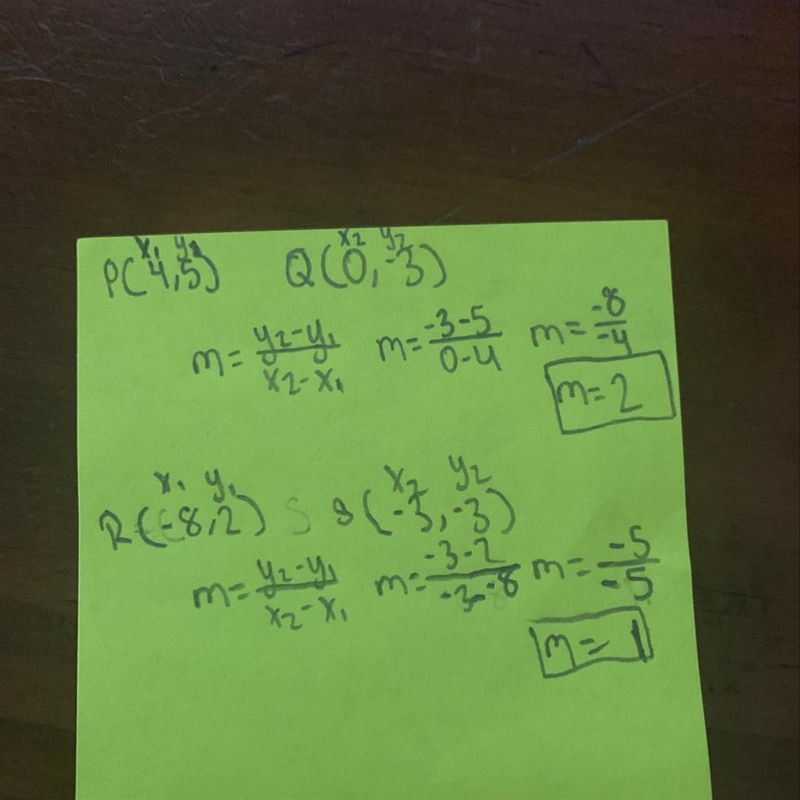 x₁ y₁ x₂ y₂
P(4,5) Q(0,-3)
m = y₂-y₁/x₂-x₁ m = -3-5/0-4 m = -8/-4
m = 2
x₁ y₁ x₂ y₂
R(-8,2) S S(-3,-3)
m = y₂-y₁/x₂-x₁ m = -3-2/-3--8 m = -5/-5
m = 1